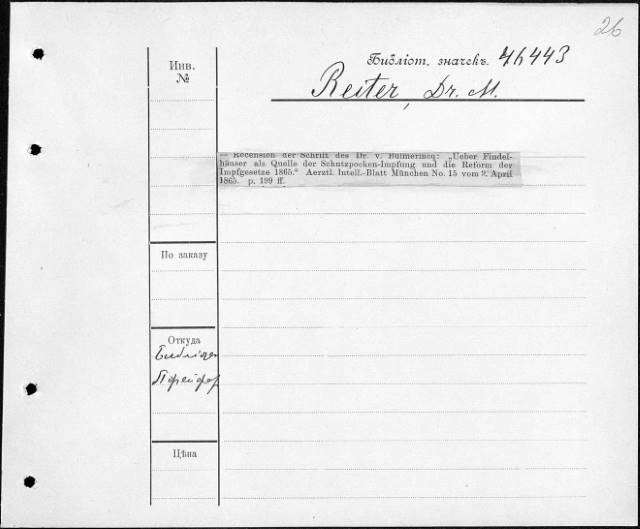 26
Инв.
№
Библіот. значекъ. 46443
Reiter, Dr. M.
— Recension der Schrift des Dr. v. Bulmerincq: „Ueber Findel-
häuser als Quelle der Schutzpocken-Impfung und die Reform der
Impfgesetze 1865.“ Aerztl. Intell.-Blatt München No. 15 vom 9. April
1865. p. 199 ff.
По заказу
Откуда
Цѣна